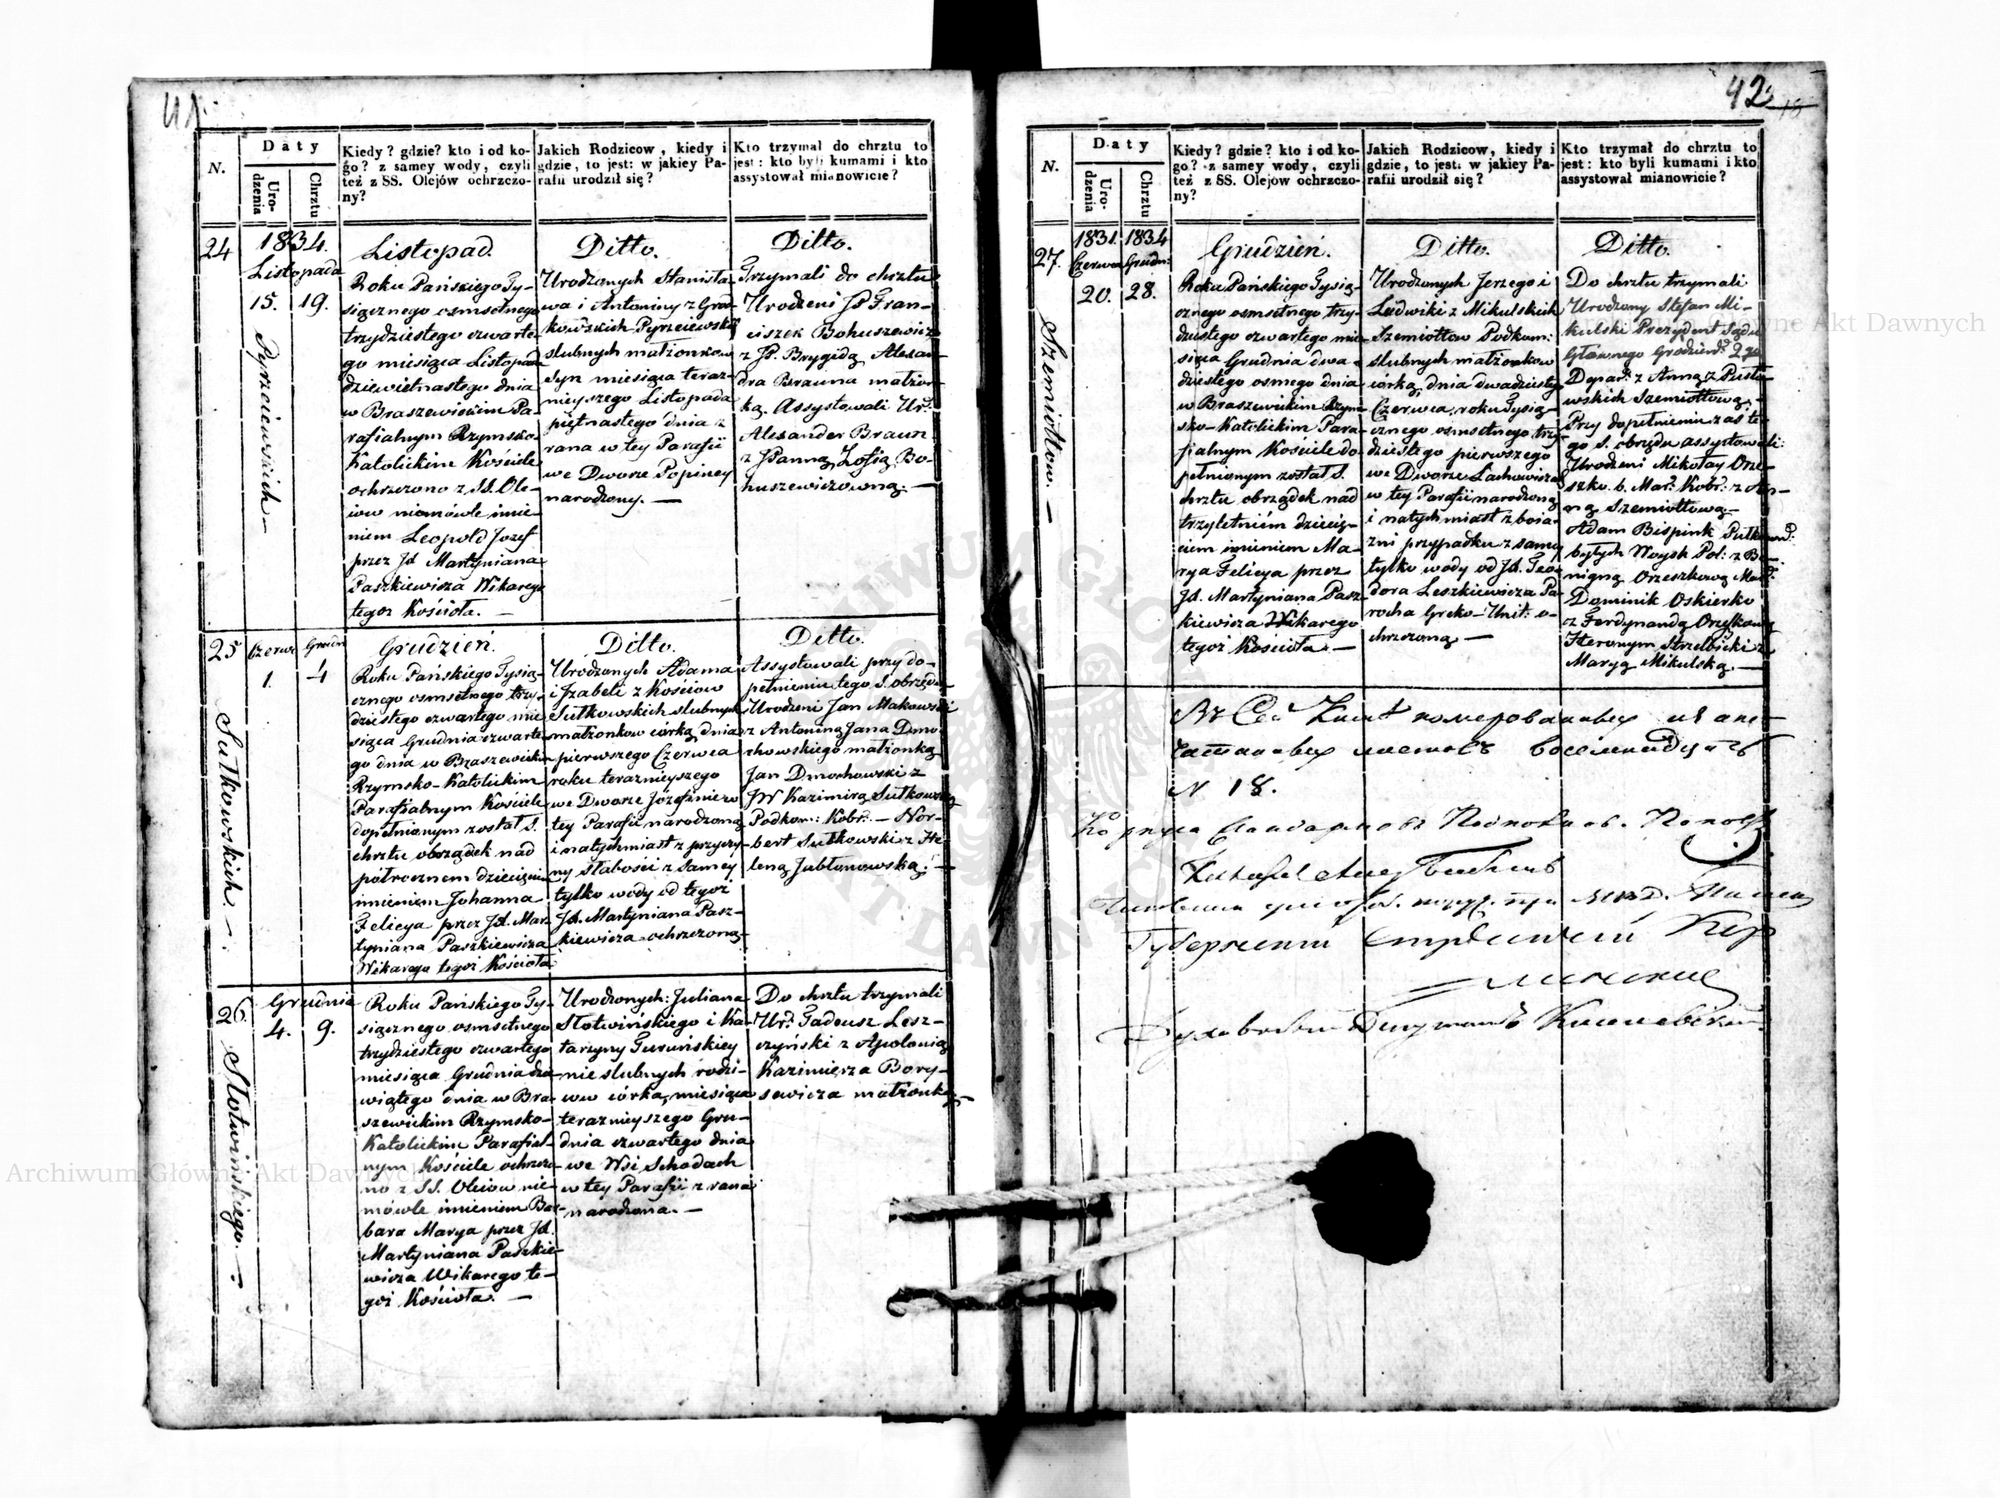 41.
N.
Daty
Urodzenia
Chrztu
Kiedy? gdzie? kto i od ko-
go? z samey wody, czyli
też z SS. Olejów ochrzczo-
ny?
Jakich Rodzicow, kiedy i
gdzie, to jest: w jakiey Pa-
rafii urodził się?
Kto trzymał do chrztu to
jest: kto byli kumami i kto
assystował mianowicie?
24
1834.
Listopada
15. 19.
Pyrzciewskich —
Listopad.
Roku Pańskiego Ty-
siącznego osmsetnego
trzydziestego czwarte-
go miesiąca Listopada
dziewietnastego dnia
w Braszewickim Pa-
rafialnym Rzymsko-
Katolickim Kościele
ochrzczono z SS. Ole-
iow niemówle imie-
niem Leopold Jozef
przez Jd. Martyniana
Paszkiewicza Wikarego
tegoz Kościoła. —
Ditto.
Urodzonych Stanisła-
wa i Antoniny z
Pyrzciewskich
slubnych małżonkow
Syn miesiąca teraz-
nieyszego Listopada
piętnastego dnia z
rana w tey Parafii
we Dworze Popiney
narodzony. —
Ditto.
Trzymali do chrztu
Urodzeni JP Fran-
ciszek Bohuszewicz
z JP. Brygidą Alexan-
dra Brauna małżon-
ką. Assystowali Ur.
Alexander Braun
z JPanną Zofią Bo-
huszewiczowną. —
25
Czerwc Grudn
1. 4
Sutkowskich. —
Grudzień.
Roku Pańskiego Tysią-
cznego osmsetnego trzy-
dziestego czwartego mie-
siąca Grudnia czwarte-
go dnia w Braszewickim
Rzymsko-Katolickim
Parafialnym Kościele
dopełnionym został S.
chrztu obrządek nad
półrocznem dziecięciem
imieniem Johanna
Felicya przez Jd. Mar-
tyniana Paszkiewicza
Wikarego tegoż Kościoła
Ditto.
Urodzonych Adama
i Izabeli z Kosciow
Sutkowskich slubnych
małżonkow córką dnia
pierwszego Czerwca
roku teraznieyszego
we Dworze Józefinie w
tey Parafii narodzoną
i natychmiast z przyczy-
ny słabości z Samey
tylko wody od tegoż
Jd. Martyniana Pasz-
kiewicza ochrzczoną —
Ditto.
Assystowali przy do-
pełnieniu tego S. obrzędu
Urodzeni Jan Makowski
z Antoniną Jana Dmo-
chowskiego małżonką
Jan Dmochowski z
JW Kazimirą Sutkowską
Podkom: Kobr. — Nor-
bert Sutkowski z He-
leną Jabłonowską: —
26.
Grudnia
4. 9.
Słotwińskiego. —
Roku Pańskiego Ty-
siącznego osmsetnego
trzydziestego czwartego
miesiąca Grudnia dzie-
wiątego dnia w Bra-
szewickim Rzymsko-
Katolickim Parafial-
nym Kościele ochrzczo-
no z SS. Oleiow nie-
mówle imieniem Bar-
bara Marya przez Jd.
Martyniana Paszkie-
wicza Wikarego te-
goż Kościoła. —
Urodzonych: Juliana
Słotwińskiego i Ka-
tarzyny Turuńskiey
nieslubnych rodzi-
ców córką, miesiąca
teraznieyszego Gru-
dnia czwartego dnia
we Wsi Schodach
w tey Parafii z rana
narodzona. —
Do chrztu trzymali
Ur. Tadeusz Lesz-
czyński z Apolonią
Kazimierza Bory-
sewicza małżonką. —
42
18
N.
Daty
Urodzenia
Chrztu
Kiedy? gdzie? kto i od ko-
go? z samey wody, czyli
też z SS. Olejów ochrzczo-
ny?
Jakich Rodzicow, kiedy i
gdzie, to jest: w jakiey Pa-
rafii urodził się?
Kto trzymał do chrztu to
jest: kto byli kumami i kto
assystował mianowicie?
27.
1831. 1834
Czerwca Grudn:
20. 28.
Szemiotłow. —
Grudzień.
Roku Pańskiego Tysią-
cznego osmsetnego trzy-
dziestego czwartego mie-
siąca Grudnia dwa-
dziestego osmego dnia
w Braszewickim Rzym-
sko-Katolickim Para-
fialnym Kościele do-
pełnionym został S.
chrztu obrządek nad
trzyletniém dziecię-
ciem imieniem Ma-
rya Felicya przez
Jd. Martyniana Pasz-
kiewicza Wikarego
tegoż Kościoła. —
Ditto.
Urodzonych Jerzego i
Ludwiki z Mikulskich
Szemiotłow Podkom:
slubnych małżonkow
córką, dnia dwadziestego
Czerwca, roku Tysią-
cznego osmsetnego trzy-
dziestego pierwszego
we Dworze Lachowicze
w tey Parafii narodzoną
i natychmiast z boia-
zni przypadku z samey
tylko wody od Jd. Teo-
dora Leszkiewicza Pa-
rocha Greko-Unit: o-
chrzczoną —
Ditto.
Do chrztu trzymali
Urodzony Stefan Mi-
kulski Prezydent Sądu
Głównego Grodzień. 2go
Depar. z Anną z Pusło-
wskich Szemiotłową
Przy dopełnieniu zaś te-
go S. obrzędu assystowali:
Urodzeni Mikołay Orze-
szko b. Mar. Kobr. z An-
ną Szemiotłową —
Adam Bispink Pułkown.
byłych Woysk Pol: z Be-
nigną Orzeszkową Mar.
Dominik Oskierko
z Ferdynandą Orzeszkową
Heronym Strzelbicki z
Maryą Mikulską. —
Въ Сей Книге номерованныхъ и
листовъ восемнадцать
N 18.
Archiwum Główne Akt Dawnych